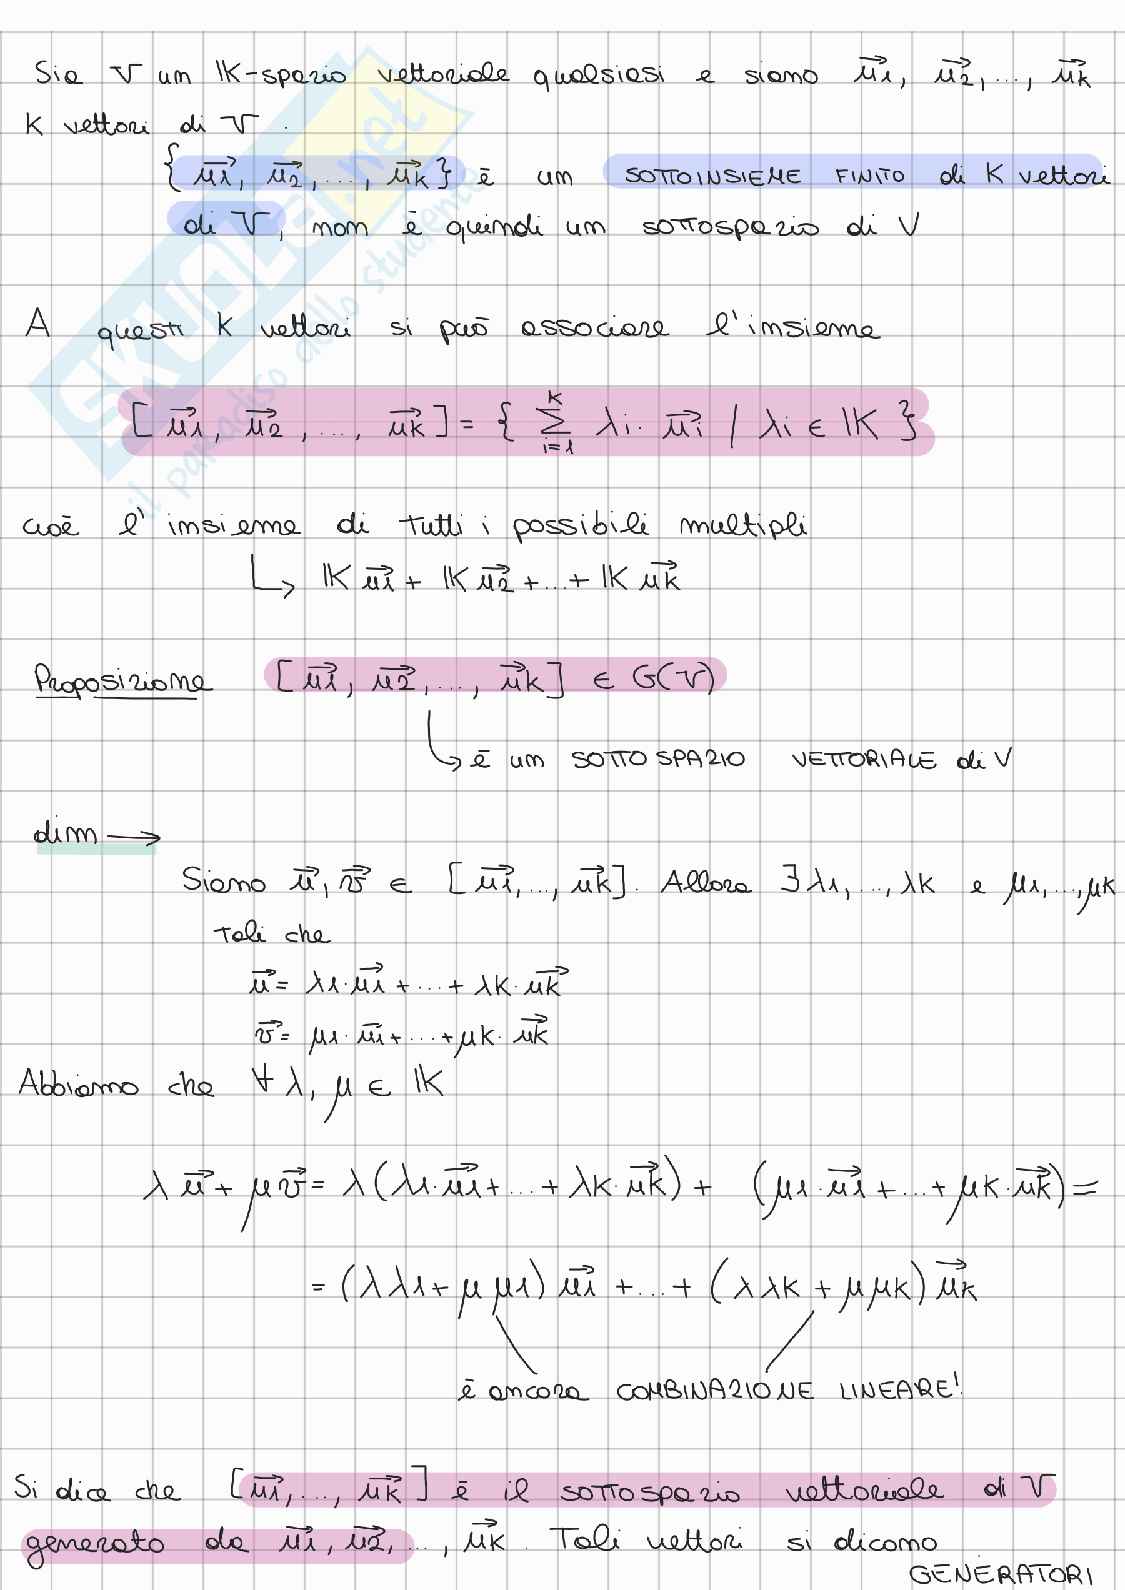 Sia V un IK-spazio vettoriale qualsiasi e siano u⃗1, u⃗2, ..., u⃗k
K vettori di V.
{u⃗1, u⃗2, ..., u⃗k} è un SOTTOINSIEME FINITO di K vettori
di V, non è quindi un sottospazio di V
A questi K vettori si può associare l'insieme
[u⃗1, u⃗2, ..., u⃗k] = { ∑_{i=1}^{K} λi · u⃗i / λi ∈ IK }
cioè l'insieme di tutti i possibili multipli
↳ IK u⃗1 + IK u⃗2 + ... + IK u⃗k
Proposizione [u⃗1, u⃗2, ..., u⃗k] ∈ G(V)
↳ è un SOTTOSPAZIO VETTORIALE di V
dim →
Siano u⃗, v⃗ ∈ [u⃗1, ..., u⃗k]. Allora ∃ λ1, ..., λk e μ1, ..., μk
Tali che
u⃗ = λ1 · u⃗1 + ... + λk · u⃗k
v⃗ = μ1 · u⃗1 + ... + μk · u⃗k
Abbiamo che ∀ λ, μ ∈ IK
λ u⃗ + μ v⃗ = λ (λ1 · u⃗1 + ... + λk · u⃗k) + (μ1 · u⃗1 + ... + μk · u⃗k) =
= (λ λ1 + μ μ1) u⃗1 + ... + (λ λk + μ μk) u⃗k
è ancora COMBINAZIONE LINEARE!
Si dice che [u⃗1, ..., u⃗k] è il sottospazio vettoriale di V
generato da u⃗1, u⃗2, ..., u⃗k. Tali vettori si dicono
GENERATORI
SKUOLA.net
il paradiso dello studente